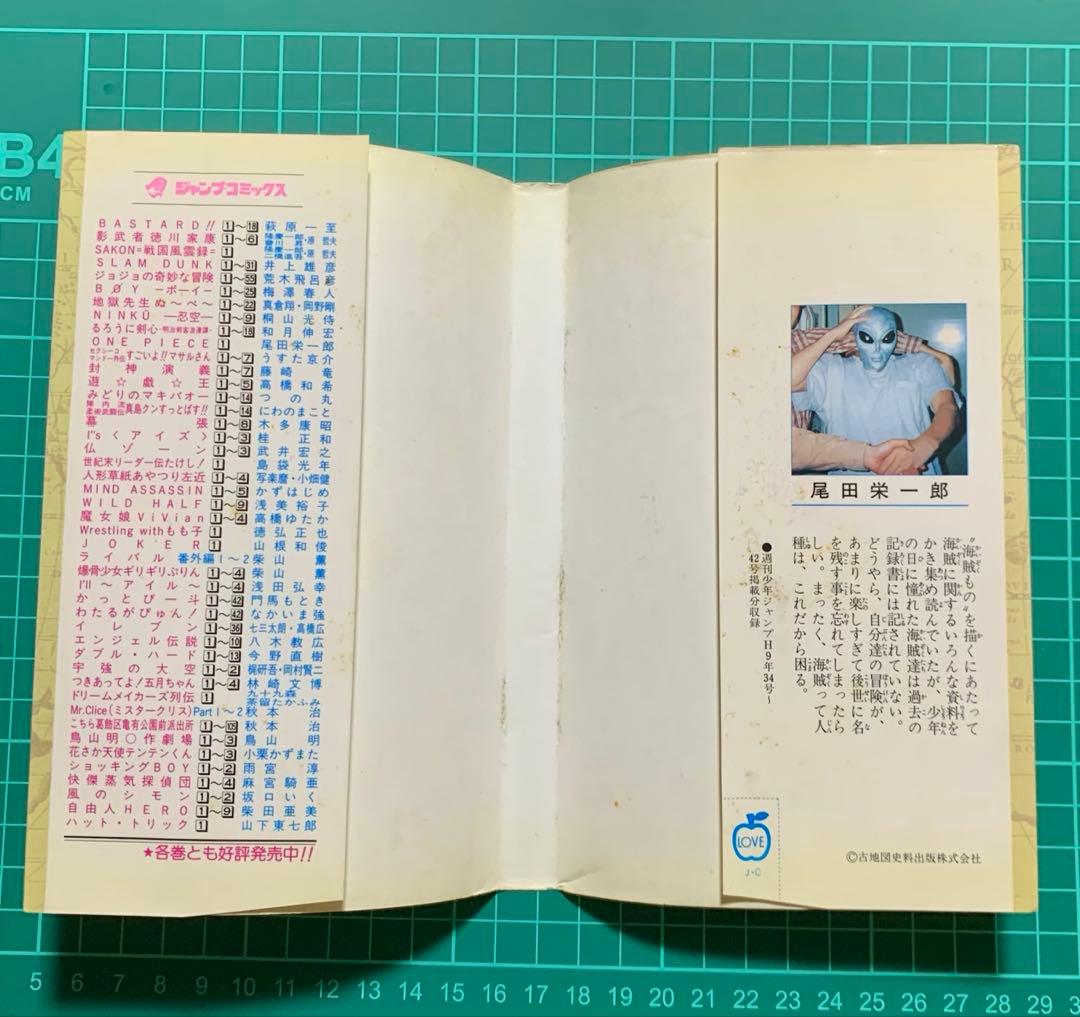 B4
CM
ジャンプ・コミックス
BASTARD!! 1〜18 萩原一至
影武者徳川家康 1〜6 隆慶一郎・原哲夫 會川昇
SAKON=戦国風雲録= 1 隆慶一郎・原哲夫 二橋進吾
SLAM DUNK 1〜31 井上雄彦
ジョジョの奇妙な冒険 1〜55 荒木飛呂彦
BØY ―ボーイ― 1〜25 梅澤春人
地獄先生ぬ〜べ〜 1〜22 真倉翔・岡野剛
NINKŪ ―忍空― 1〜9 桐山光侍
るろうに剣心-明治剣客浪漫譚- 1〜18 和月伸宏
ONE PIECE 1 尾田栄一郎
セクシーコマンドー外伝すごいよ!!マサルさん 1〜7 うすた京介
封神演義 1〜7 藤崎竜
遊☆戯☆王 1〜5 高橋和希
みどりのマキバオー 1〜14 つの丸
陣内流柔術武闘伝真島クンすっとばす!! 1〜14 にわのまこと
幕張 1〜8 木多康昭
I"s〈アイズ〉 1〜3 桂正和
仏ゾーン 1〜3 武井宏之
世紀末リーダー伝たけし! 1 島袋光年
人形草紙あやつり左近 1〜4 写楽麿・小畑健
MIND ASSASSIN 1〜5 かずはじめ
WILD HALF 1〜9 浅美裕子
魔女娘ViVian 1〜4 高橋ゆたか
Wrestling withもも子 1 徳弘正也
JOKER 1 山根和俊
ライバル 番外編1〜2 柴山薫
爆骨少女ギリギリぷりん 1〜4 柴山薫
I'll 〜アイル〜 1〜4 浅田弘幸
かっとび一斗 1〜42 門馬もとき
わたるがぴゅん! 1〜42 なかいま強
イレブン 1〜36 七三太朗・高橋広
エンジェル伝説 1〜10 八木教広
ダブル・ハード 1〜13 今野直樹
宇強の大空 1〜2 梶研吾・岡村賢二
つきあってよ!五月ちゃん 1〜4 林崎文博
ドリームメイカーズ列伝 1 九十九森 茶留たかふみ
Mr.Clice(ミスタークリス) Part1〜2 秋本治
こちら葛飾区亀有公園前派出所 1〜105 秋本治
鳥山明○作劇場 1〜3 鳥山明
花さか天使テンテンくん 1〜3 小栗かずまた
ショッキングBOY 1〜2 雨宮淳
快傑蒸気探偵団 1〜4 麻宮騎亜
風のシモン 1〜2 坂口いく
自由人HERO 1〜9 柴田亜美
ハット・トリック 1 山下東七郎
★各巻とも好評発売中!!
尾田栄一郎
"海賊もの"を描くにあたって
海賊に関するいろんな資料を
かき集め読んでいたが、少年
の日に憧れた海賊達は過去の
記録書には記されていない。
どうやら、自分達の冒険が
あまりに楽しすぎて後世に名
を残す事を忘れてしまったら
しい。まったく、海賊って人
種は、これだから困る。
●週刊少年ジャンプH9年34号〜
42号掲載分収録
LOVE
J・C
©古地図史料出版株式会社
5 6 7 8 9 10 11 12 13 14 15 16 17 18 19 20 21 22 23 24 25 26 27 28 29